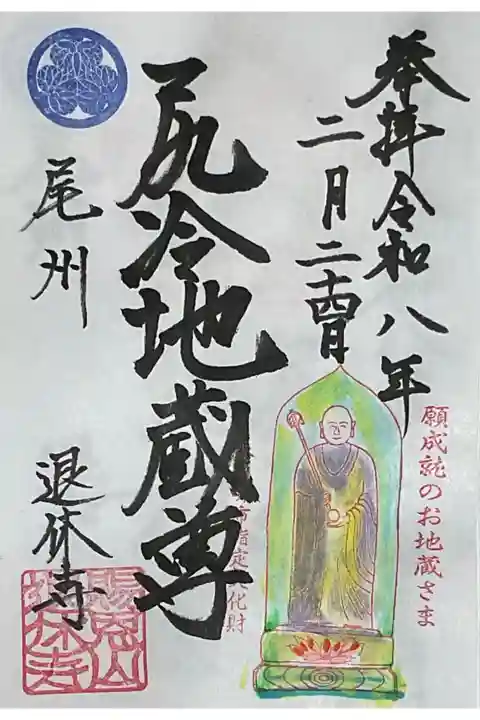 奉拝令和八年
二月二十四日
願成就のお地蔵さま
尻冷地蔵尊
市指定文化財
尾州
退休寺